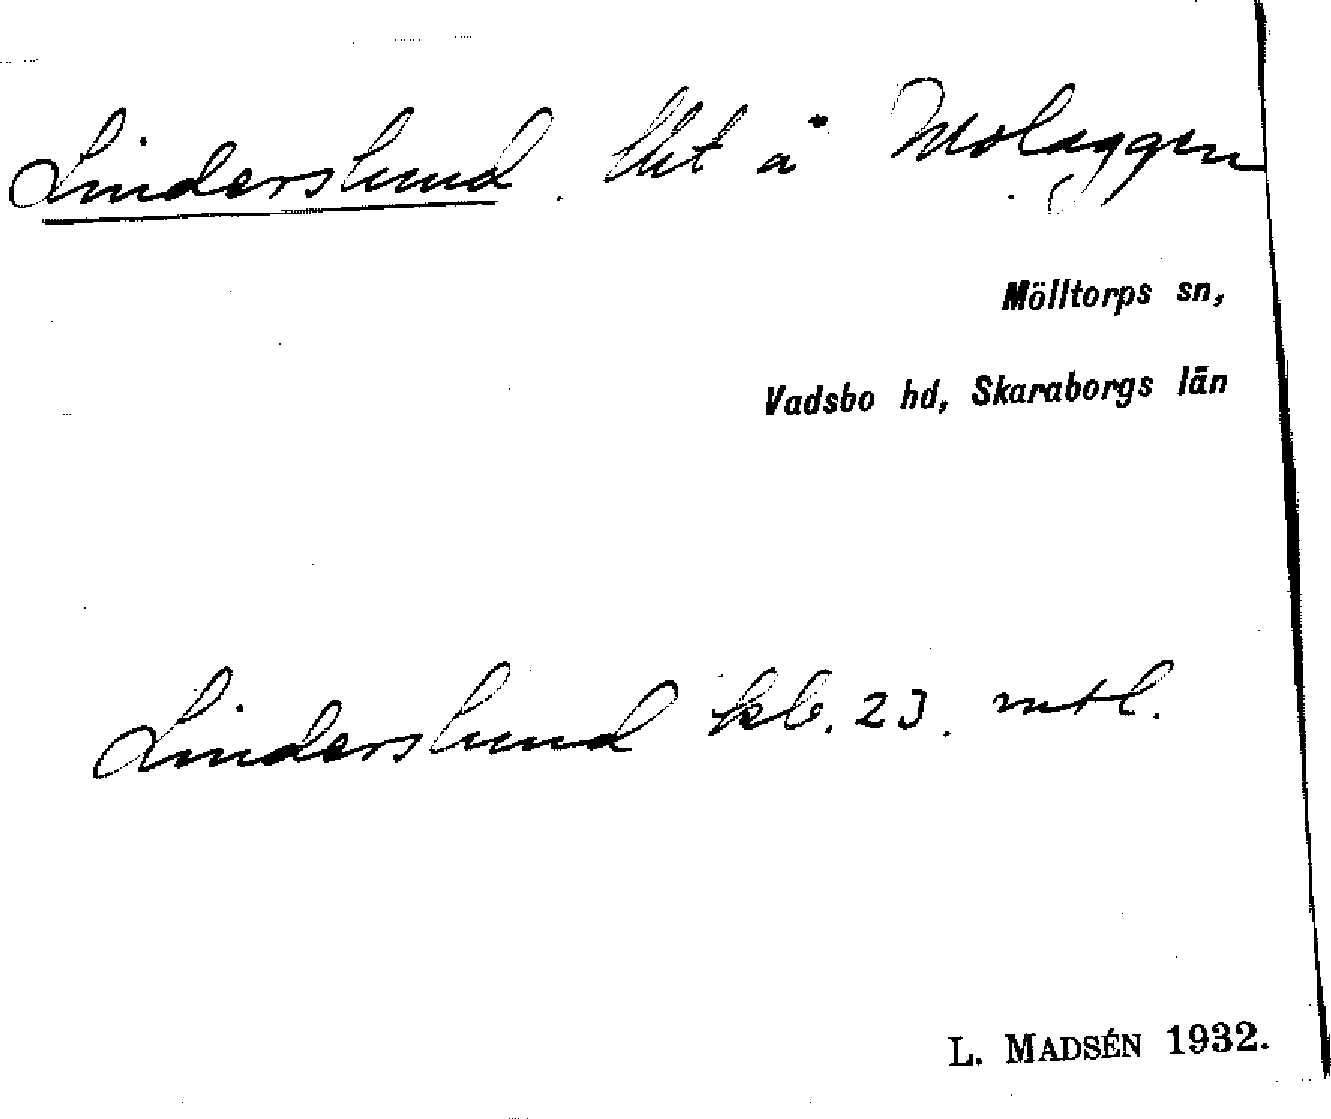 Linderslund. lht å Molaggen
Mölltorps sn,
Vadsbo hd, Skaraborgs län
Linderslund kb. 23. mtl.
L. MADSÉN 1932.